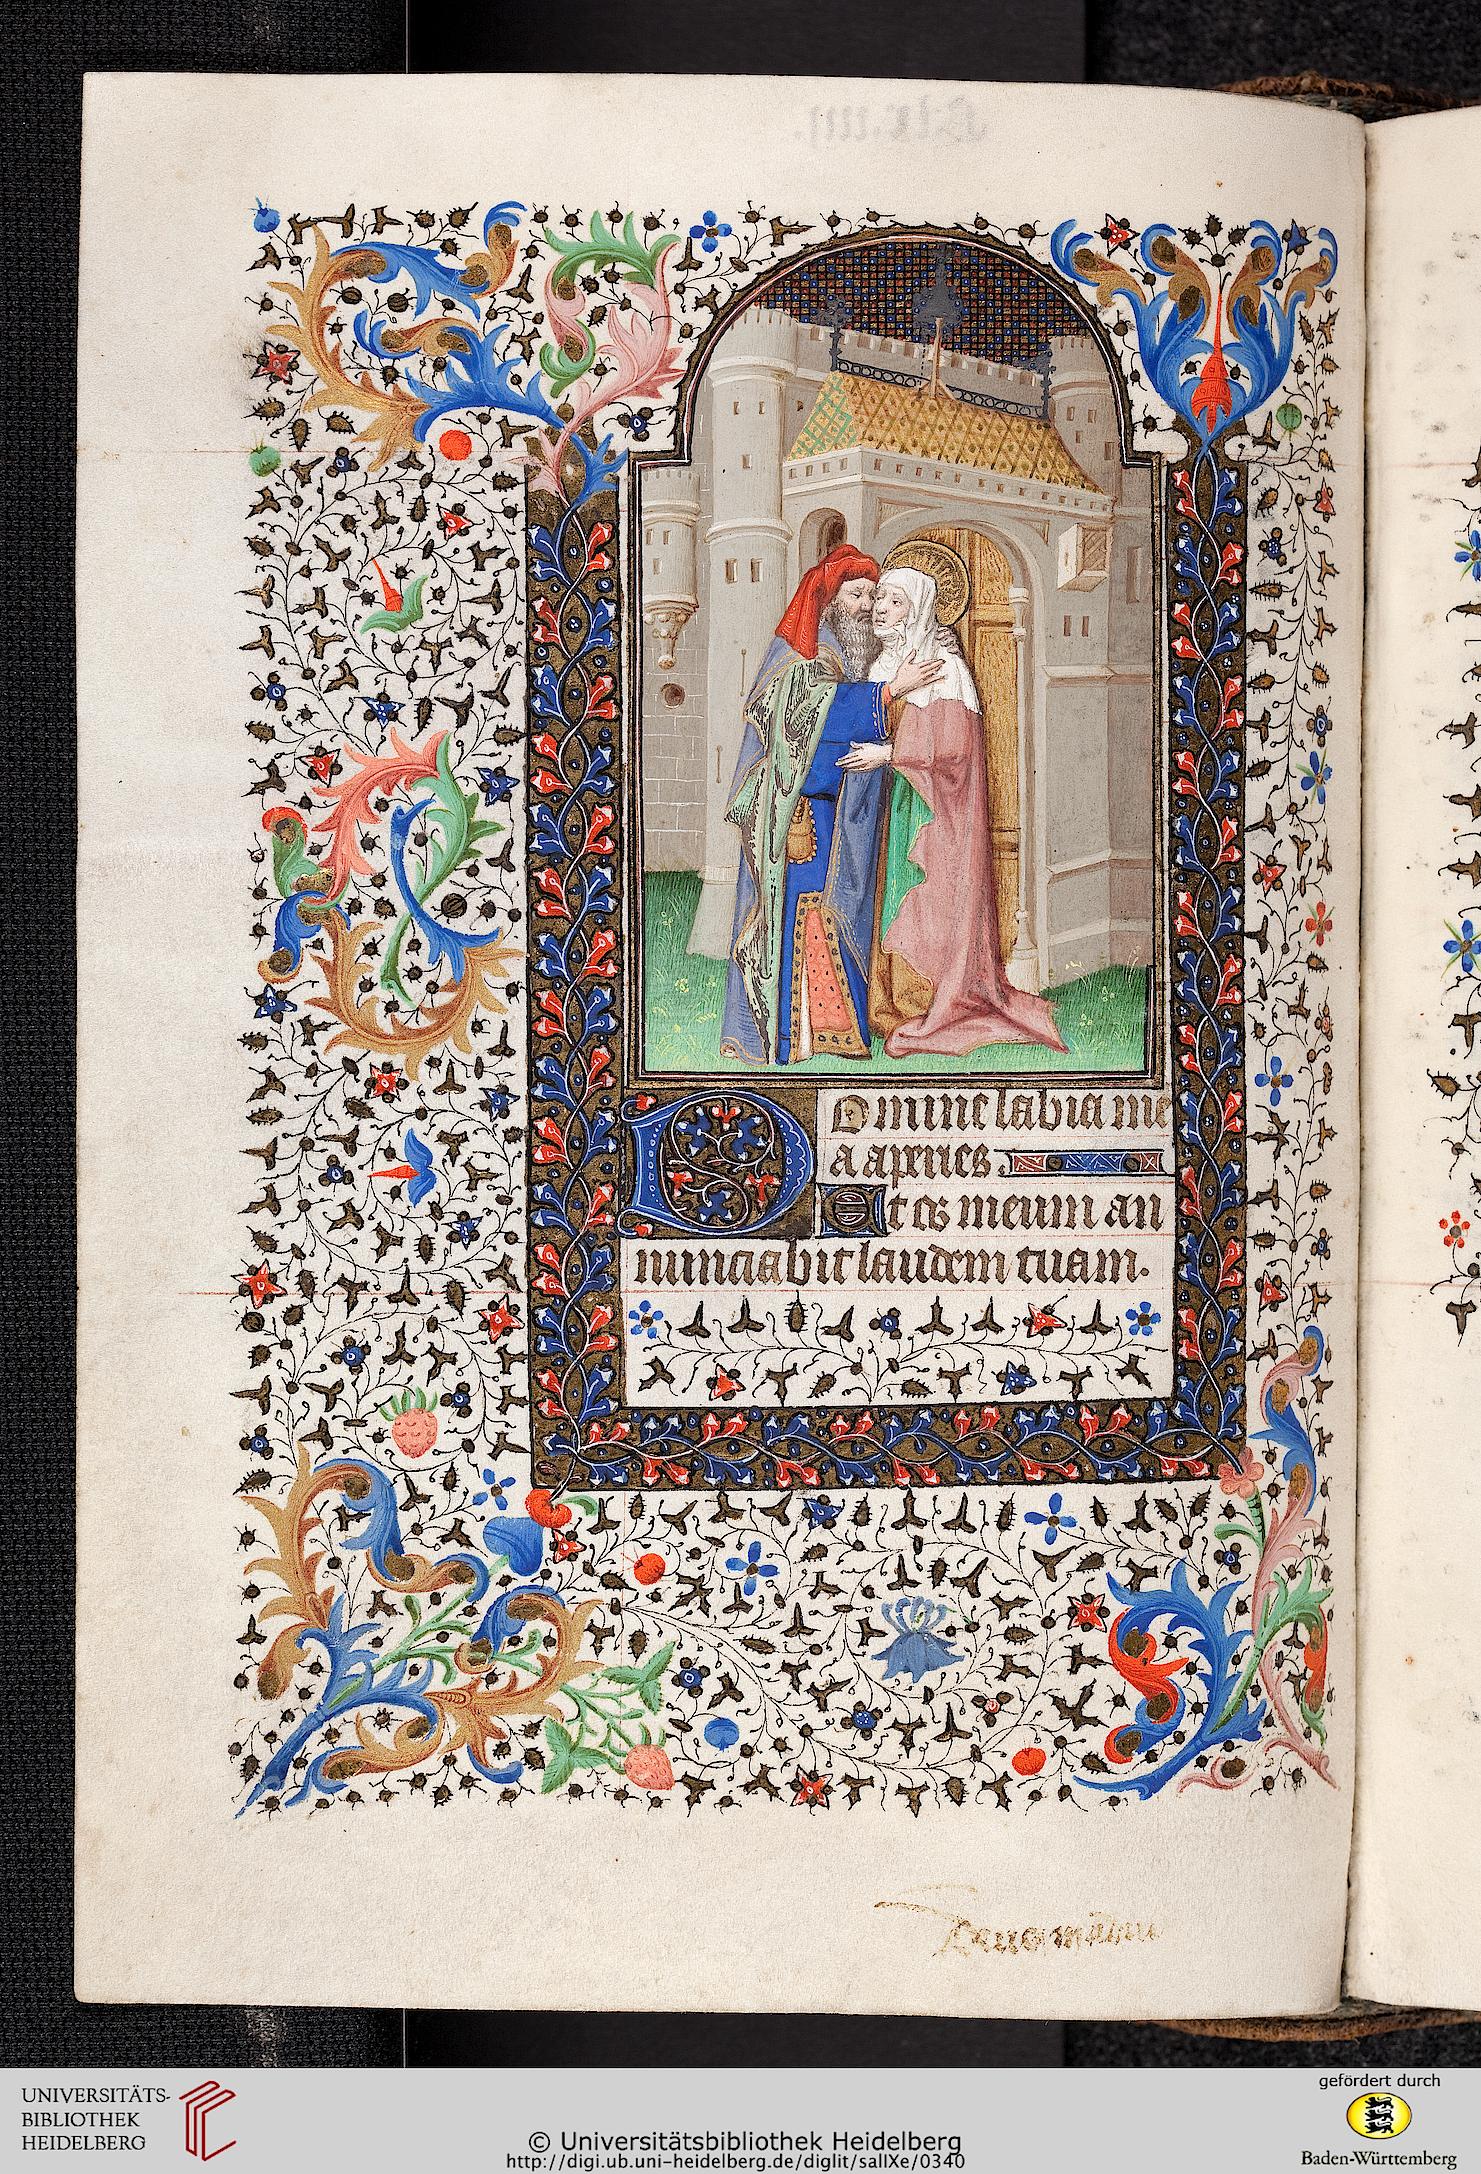 Domine labia me
a aperies.
Et os meum an
nunciabit laudem tuam.
UNIVERSITÄTS-
BIBLIOTHEK
HEIDELBERG
© Universitätsbibliothek Heidelberg
http://digi.ub.uni-heidelberg.de/diglit/salIXe/0340
gefördert durch
Baden-Württemberg